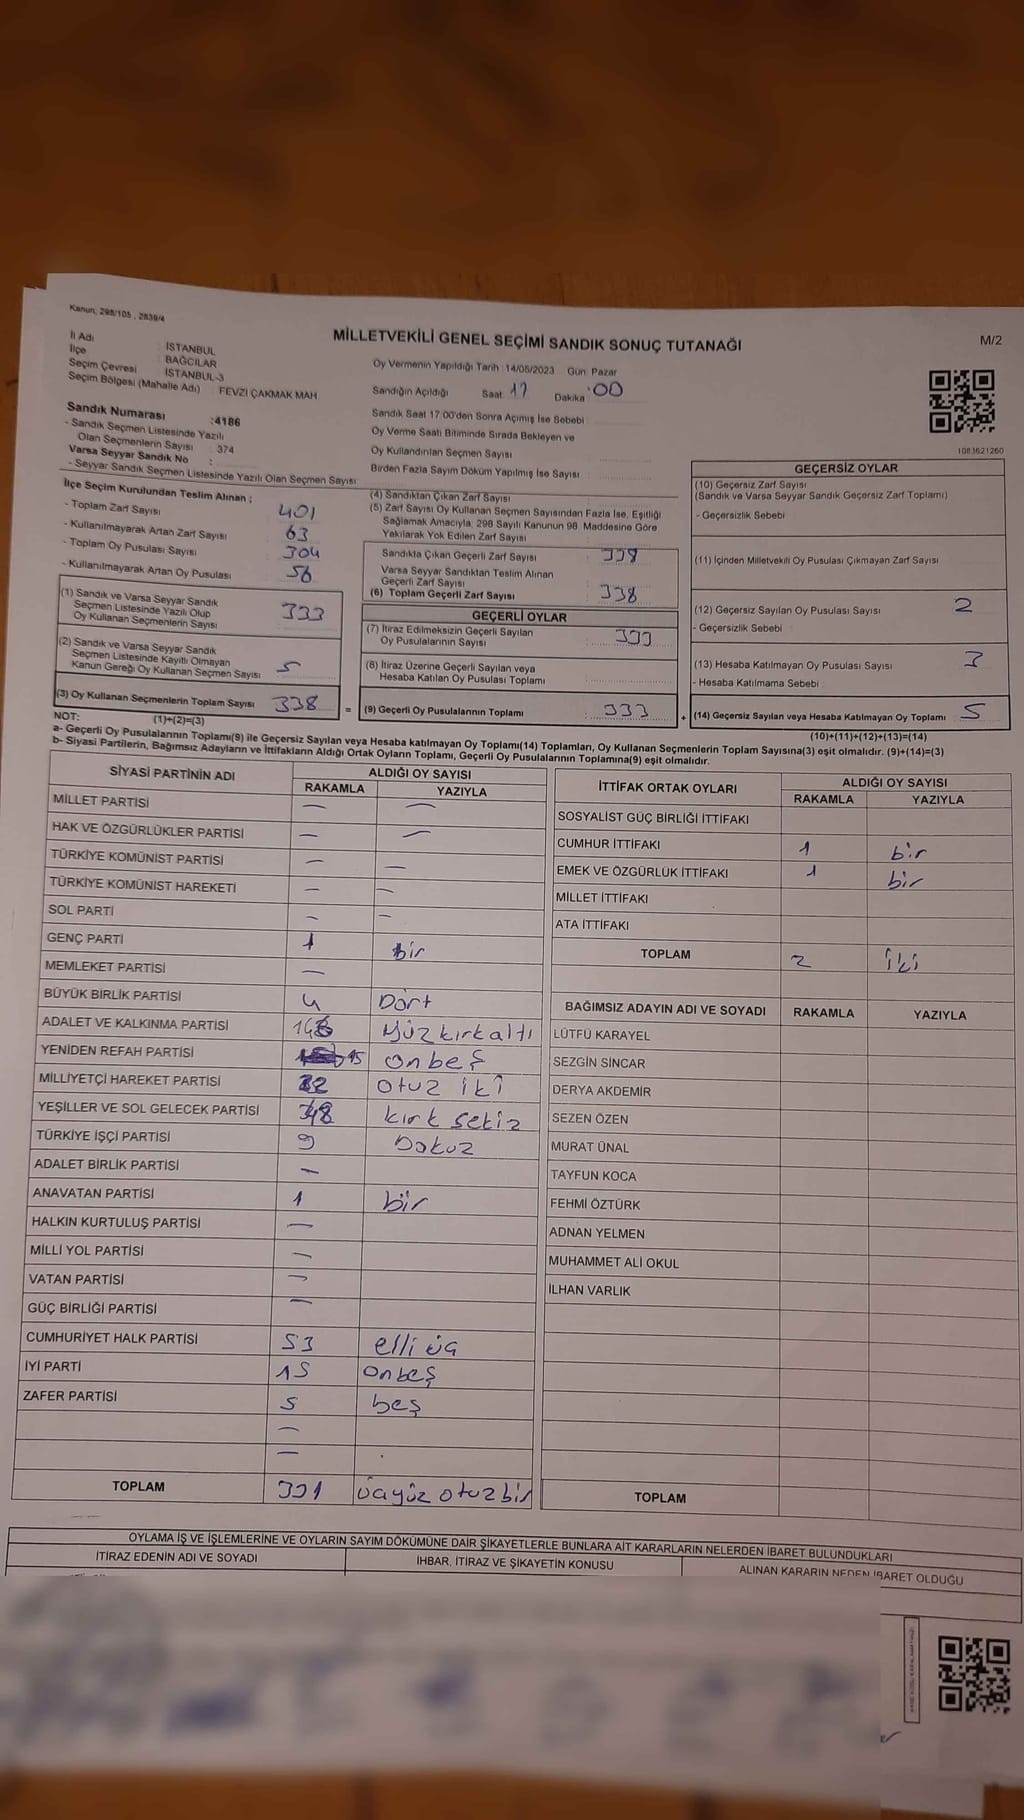 Kanun, 298/105 , 2839/4
MİLLETVEKİLİ GENEL SEÇİMİ SANDIK SONUÇ TUTANAĞI
M/2
İl Adı : İSTANBUL
İlçe : BAĞCILAR
Seçim Çevresi : İSTANBUL-3
Seçim Bölgesi (Mahalle Adı) : FEVZİ ÇAKMAK MAH.
Sandık Numarası :4186
- Sandık Seçmen Listesinde Yazılı
Olan Seçmenlerin Sayısı : 374
Varsa Seyyar Sandık No :
- Seyyar Sandık Seçmen Listesinde Yazılı Olan Seçmen Sayısı
Oy Vermenin Yapıldığı Tarih :14/05/2023 Gün: Pazar
Sandığın Açıldığı Saat: 17 Dakika: 00
Sandık Saat 17:00'den Sonra Açılmış İse Sebebi :
Oy Verme Saati Bitiminde Sırada Bekleyen ve
Oy Kullandırılan Seçmen Sayısı
Birden Fazla Sayım Döküm Yapılmış İse Sayısı
1083621260
İlçe Seçim Kurulundan Teslim Alınan ;
- Toplam Zarf Sayısı 401
- Kullanılmayarak Artan Zarf Sayısı 63
- Toplam Oy Pusulası Sayısı 304
- Kullanılmayarak Artan Oy Pusulası 56
(1) Sandık ve Varsa Seyyar Sandık
Seçmen Listesinde Yazılı Olup
Oy Kullanan Seçmenlerin Sayısı 333
(2) Sandık ve Varsa Seyyar Sandık
Seçmen Listesinde Kayıtlı Olmayan
Kanun Gereği Oy Kullanan Seçmen Sayısı 5
(3) Oy Kullanan Seçmenlerin Toplam Sayısı 338
(1)+(2)=(3)
(4) Sandıktan Çıkan Zarf Sayısı
(5) Zarf Sayısı Oy Kullanan Seçmen Sayısından Fazla İse, Eşitliği
Sağlamak Amacıyla, 298 Sayılı Kanunun 98. Maddesine Göre
Yakılarak Yok Edilen Zarf Sayısı
Sandıkta Çıkan Geçerli Zarf Sayısı 338
Varsa Seyyar Sandıktan Teslim Alınan
Geçerli Zarf Sayısı
(6) Toplam Geçerli Zarf Sayısı 338
GEÇERLİ OYLAR
(7) İtiraz Edilmeksizin Geçerli Sayılan
Oy Pusulalarının Sayısı 333
(8) İtiraz Üzerine Geçerli Sayılan veya
Hesaba Katılan Oy Pusulası Toplamı
= (9) Geçerli Oy Pusulalarının Toplamı 333 +
GEÇERSİZ OYLAR
(10) Geçersiz Zarf Sayısı
(Sandık ve Varsa Seyyar Sandık Geçersiz Zarf Toplamı)
- Geçersizlik Sebebi
(11) İçinden Milletvekili Oy Pusulası Çıkmayan Zarf Sayısı
(12) Geçersiz Sayılan Oy Pusulası Sayısı 2
- Geçersizlik Sebebi
(13) Hesaba Katılmayan Oy Pusulası Sayısı 3
- Hesaba Katılmama Sebebi
(14) Geçersiz Sayılan veya Hesaba Katılmayan Oy Toplamı 5
(10)+(11)+(12)+(13)=(14)
NOT:
a- Geçerli Oy Pusulalarının Toplamı(9) ile Geçersiz Sayılan veya Hesaba katılmayan Oy Toplamı(14) Toplamları, Oy Kullanan Seçmenlerin Toplam Sayısına(3) eşit olmalıdır. (9)+(14)=(3)
b- Siyasi Partilerin, Bağımsız Adayların ve İttifakların Aldığı Ortak Oyların Toplamı, Geçerli Oy Pusulalarının Toplamına(9) eşit olmalıdır.
SİYASİ PARTİNİN ADI ALDIĞI OY SAYISI
RAKAMLA YAZIYLA
MİLLET PARTİSİ — —
HAK VE ÖZGÜRLÜKLER PARTİSİ — —
TÜRKİYE KOMÜNİST PARTİSİ — —
TÜRKİYE KOMÜNİST HAREKETİ — —
SOL PARTİ — —
GENÇ PARTİ 1 bir
MEMLEKET PARTİSİ —
BÜYÜK BİRLİK PARTİSİ 4 Dört
ADALET VE KALKINMA PARTİSİ 146 Yüz kırk altı
YENİDEN REFAH PARTİSİ 15 on beş
MİLLİYETÇİ HAREKET PARTİSİ 32 otuz iki
YEŞİLLER VE SOL GELECEK PARTİSİ 48 kırk sekiz
TÜRKİYE İŞÇİ PARTİSİ 9 Dokuz
ADALET BİRLİK PARTİSİ —
ANAVATAN PARTİSİ 1 bir
HALKIN KURTULUŞ PARTİSİ —
MİLLİ YOL PARTİSİ —
VATAN PARTİSİ —
GÜÇ BİRLİĞİ PARTİSİ —
CUMHURİYET HALK PARTİSİ 53 elli üç
İYİ PARTİ 15 onbeş
ZAFER PARTİSİ 5 beş
—
—
TOPLAM 331 üçyüz otuz bir
İTTİFAK ORTAK OYLARI ALDIĞI OY SAYISI
RAKAMLA YAZIYLA
SOSYALİST GÜÇ BİRLİĞİ İTTİFAKI
CUMHUR İTTİFAKI 1 bir
EMEK VE ÖZGÜRLÜK İTTİFAKI 1 bir
MİLLET İTTİFAKI
ATA İTTİFAKI
TOPLAM 2 iki
BAĞIMSIZ ADAYIN ADI VE SOYADI RAKAMLA YAZIYLA
LÜTFÜ KARAYEL
SEZGİN SİNCAR
DERYA AKDEMİR
SEZEN ÖZEN
MURAT ÜNAL
TAYFUN KOCA
FEHMİ ÖZTÜRK
ADNAN YELMEN
MUHAMMET ALİ OKUL
İLHAN VARLIK
TOPLAM
OYLAMA İŞ VE İŞLEMLERİNE VE OYLARIN SAYIM DÖKÜMÜNE DAİR ŞİKAYETLERLE BUNLARA AİT KARARLARIN NELERDEN İBARET BULUNDUKLARI
İTİRAZ EDENİN ADI VE SOYADI İHBAR, İTİRAZ VE ŞİKAYETİN KONUSU ALINAN KARARIN NEDEN İBARET OLDUĞU